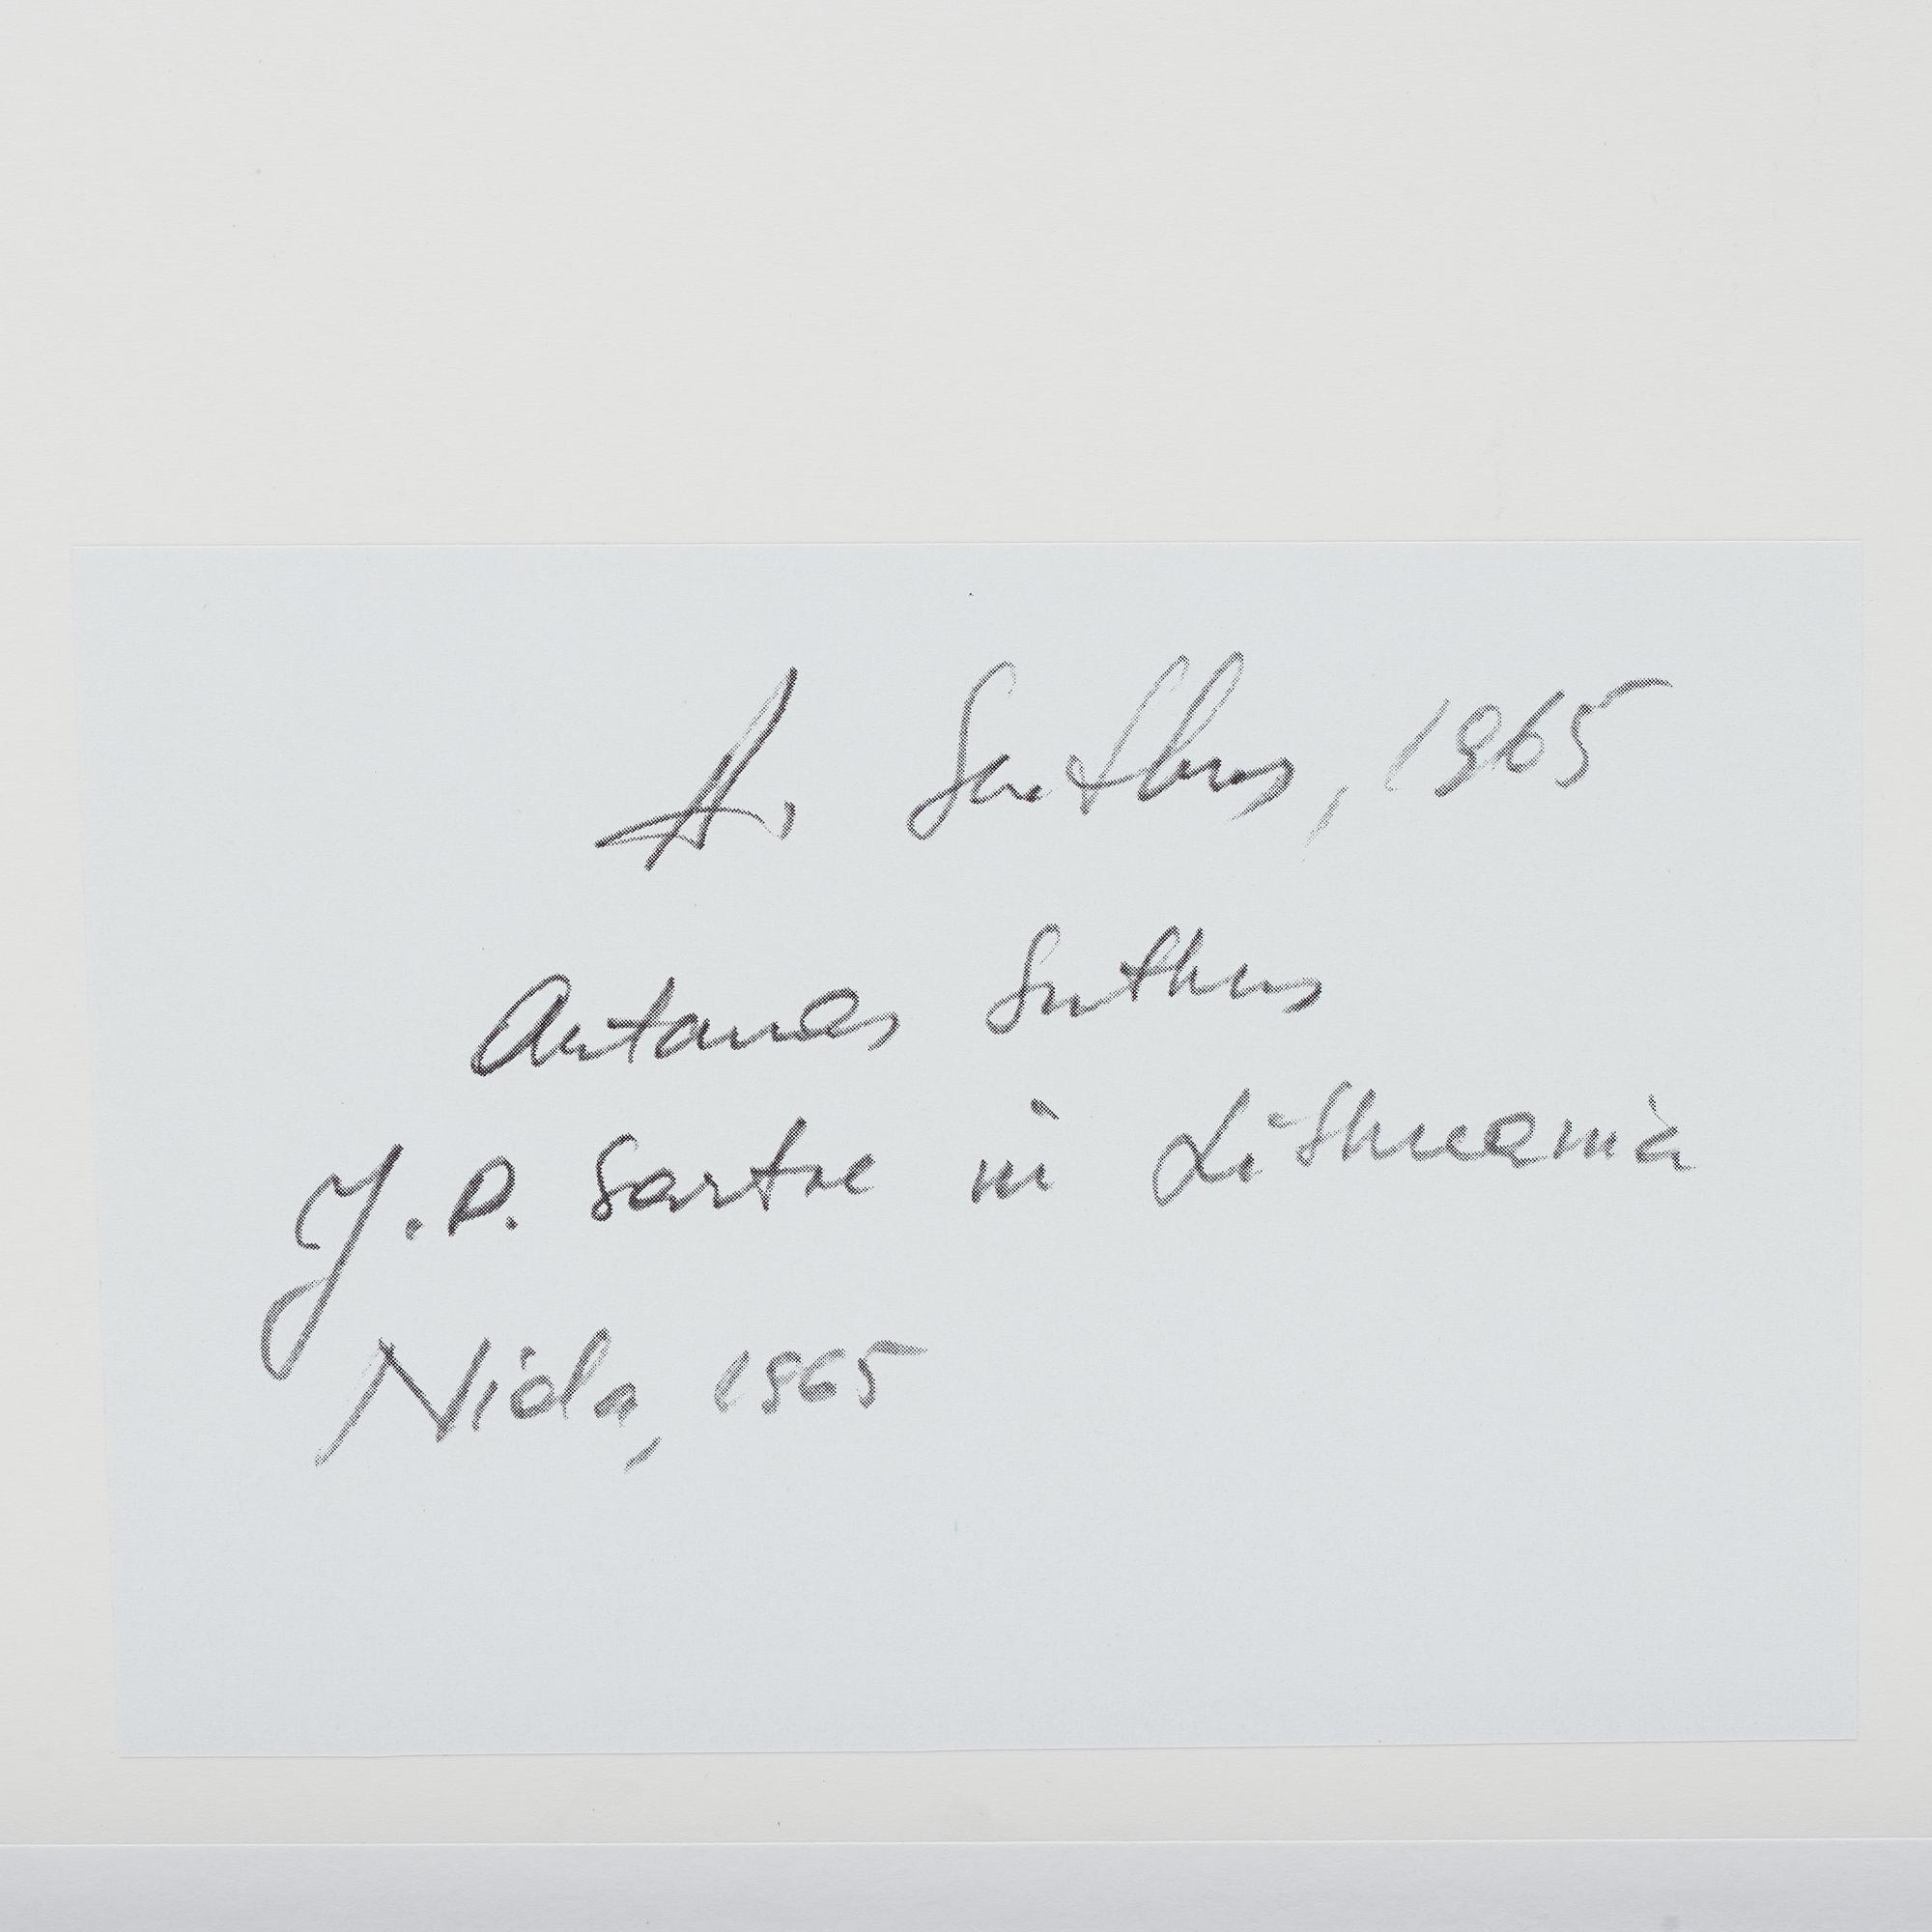 A. Sutkus, 1965
Antanas Sutkus
J. P. Sartre in Lithuania
Nida, 1965